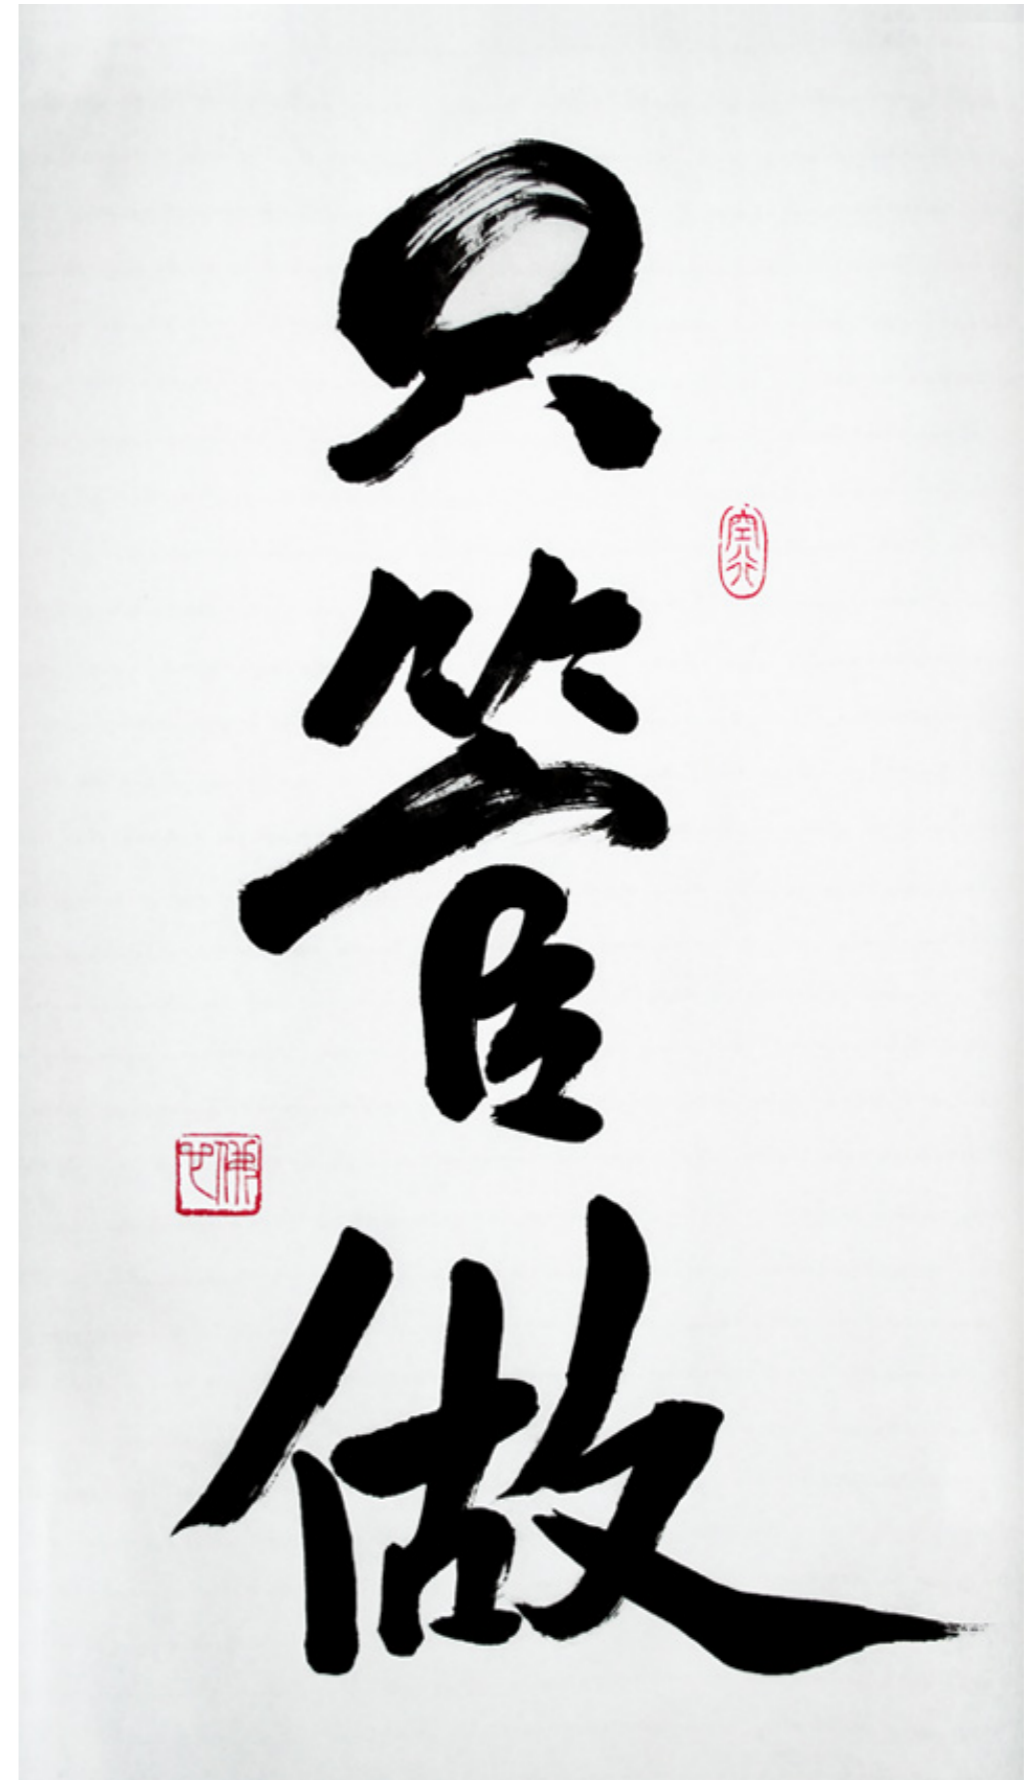 只管做